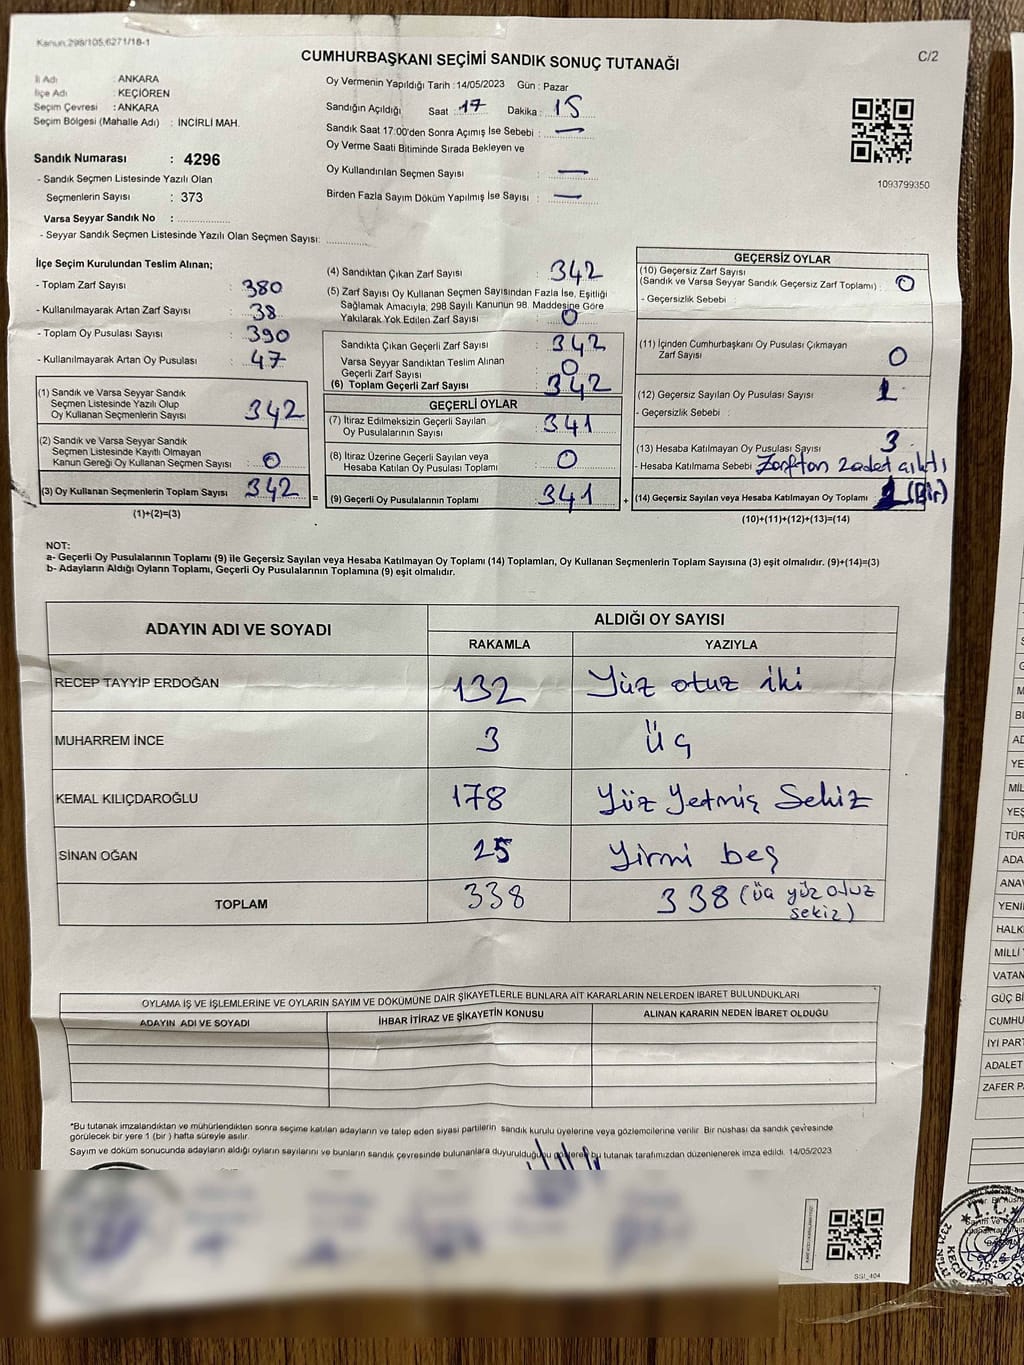 Kanun:298/105,6271/18-1
CUMHURBAŞKANI SEÇİMİ SANDIK SONUÇ TUTANAĞI
C/2
İl Adı : ANKARA
İlçe Adı : KEÇİÖREN
Seçim Çevresi : ANKARA
Seçim Bölgesi (Mahalle Adı) : İNCİRLİ MAH.
Sandık Numarası : 4296
- Sandık Seçmen Listesinde Yazılı Olan
Seçmenlerin Sayısı : 373
Varsa Seyyar Sandık No :
- Seyyar Sandık Seçmen Listesinde Yazılı Olan Seçmen Sayısı:
Oy Vermenin Yapıldığı Tarih : 14/05/2023 Gün : Pazar
Sandığın Açıldığı Saat : 17 Dakika : 15
Sandık Saat 17:00'den Sonra Açımış İse Sebebi : —
Oy Verme Saati Bitiminde Sırada Bekleyen ve
Oy Kullandırılan Seçmen Sayısı : —
Birden Fazla Sayım Döküm Yapılmış İse Sayısı : —
1093799350
İlçe Seçim Kurulundan Teslim Alınan;
- Toplam Zarf Sayısı : 380
- Kullanılmayarak Artan Zarf Sayısı : 38
- Toplam Oy Pusulası Sayısı : 390
- Kullanılmayarak Artan Oy Pusulası : 47
(1) Sandık ve Varsa Seyyar Sandık
Seçmen Listesinde Yazılı Olup
Oy Kullanan Seçmenlerin Sayısı : 342
(2) Sandık ve Varsa Seyyar Sandık
Seçmen Listesinde Kayıtlı Olmayan
Kanun Gereği Oy Kullanan Seçmen Sayısı : 0
(3) Oy Kullanan Seçmenlerin Toplam Sayısı : 342 =
(1)+(2)=(3)
(4) Sandıktan Çıkan Zarf Sayısı : 342
(5) Zarf Sayısı Oy Kullanan Seçmen Sayısından Fazla İse, Eşitliği
Sağlamak Amacıyla, 298 Sayılı Kanunun 98. Maddesine Göre
Yakılarak Yok Edilen Zarf Sayısı : 0
Sandıkta Çıkan Geçerli Zarf Sayısı : 342
Varsa Seyyar Sandıktan Teslim Alınan
Geçerli Zarf Sayısı : 0
(6) Toplam Geçerli Zarf Sayısı : 342
GEÇERLİ OYLAR
(7) İtiraz Edilmeksizin Geçerli Sayılan
Oy Pusulalarının Sayısı : 341
(8) İtiraz Üzerine Geçerli Sayılan veya
Hesaba Katılan Oy Pusulası Toplamı : 0
(9) Geçerli Oy Pusulalarının Toplamı : 341 +
GEÇERSİZ OYLAR
(10) Geçersiz Zarf Sayısı
(Sandık ve Varsa Seyyar Sandık Geçersiz Zarf Toplamı) : 0
- Geçersizlik Sebebi :
(11) İçinden Cumhurbaşkanı Oy Pusulası Çıkmayan
Zarf Sayısı : 0
(12) Geçersiz Sayılan Oy Pusulası Sayısı : 1
- Geçersizlik Sebebi :
(13) Hesaba Katılmayan Oy Pusulası Sayısı : 3
- Hesaba Katılmama Sebebi : Zarftan 2 adet çıktı
(14) Geçersiz Sayılan veya Hesaba Katılmayan Oy Toplamı : 1 (Bir)
(10)+(11)+(12)+(13)=(14)
NOT:
a- Geçerli Oy Pusulalarının Toplamı (9) ile Geçersiz Sayılan veya Hesaba Katılmayan Oy Toplamı (14) Toplamları, Oy Kullanan Seçmenlerin Toplam Sayısına (3) eşit olmalıdır. (9)+(14)=(3)
b- Adayların Aldığı Oyların Toplamı, Geçerli Oy Pusulalarının Toplamına (9) eşit olmalıdır.
ADAYIN ADI VE SOYADI
ALDIĞI OY SAYISI
RAKAMLA YAZIYLA
RECEP TAYYİP ERDOĞAN 132 Yüz otuz iki
MUHARREM İNCE 3 Üç
KEMAL KILIÇDAROĞLU 178 Yüz Yetmiş Sekiz
SİNAN OĞAN 25 Yirmi beş
TOPLAM 338 338 (üç yüz otuz
sekiz)
OYLAMA İŞ VE İŞLEMLERİNE VE OYLARIN SAYIM VE DÖKÜMÜNE DAİR ŞİKAYETLERLE BUNLARA AİT KARARLARIN NELERDEN İBARET BULUNDUKLARI
ADAYIN ADI VE SOYADI İHBAR İTİRAZ VE ŞİKAYETİN KONUSU ALINAN KARARIN NEDEN İBARET OLDUĞU
*Bu tutanak imzalandıktan ve mühürlendikten sonra seçime katılan adayların ve talep eden siyasi partilerin sandık kurulu üyelerine veya gözlemcilerine verilir. Bir nüshası da sandık çevresinde
görülecek bir yere 1 (bir) hafta süreyle asılır.
Sayım ve döküm sonucunda adayların aldığı oyların sayılarını ve bunların sandık çevresinde bulunanlara duyurulduğunu gösteren bu tutanak tarafımızdan düzenlenerek imza edildi. 14/05/2023
YE
YEŞ
TÜR
ADA
ANA
YENİ
HALK
MİLLİ
VATAN
GÜÇ Bİ
CUMHU
İYİ PART
ADALET
ZAFER P
T.C.